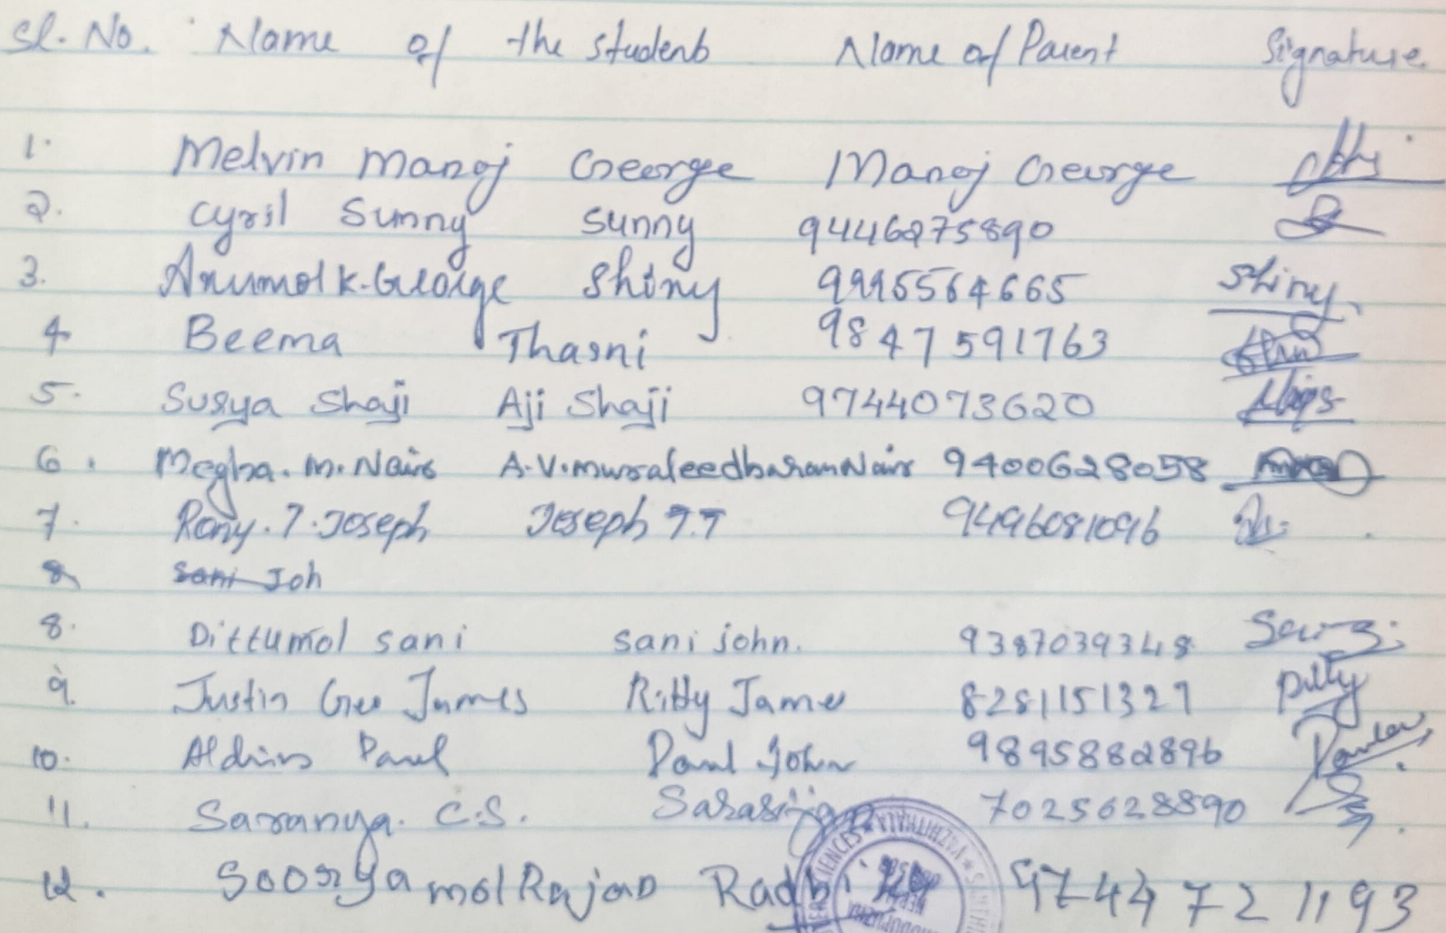 Sl. No. Name of the student Name of Parent Signature
1. Melvin Manoj George Manoj George
2. Cyril Sunny Sunny 9446275890
3. Anumol K. George Shiny 9995564665 Shiny
4 Beema Thasni 9847591763
5. Surya Shaji Aji Shaji 9744073620
6. Megha. M. Nair A.V. Muraleedharan Nair 9400628058
7. Rony. T. Joseph Joseph T.T 9496081096
8 Sani Joh
8. Dittumol Sani Sani John. 9387039348
9. Justin Geo James Ritty Jame 8281151327
10. Aldrin Paul Paul John 9895882896
11. Saranya. C.S. 7025628890
12. Soorya mol Rajan 9744721193